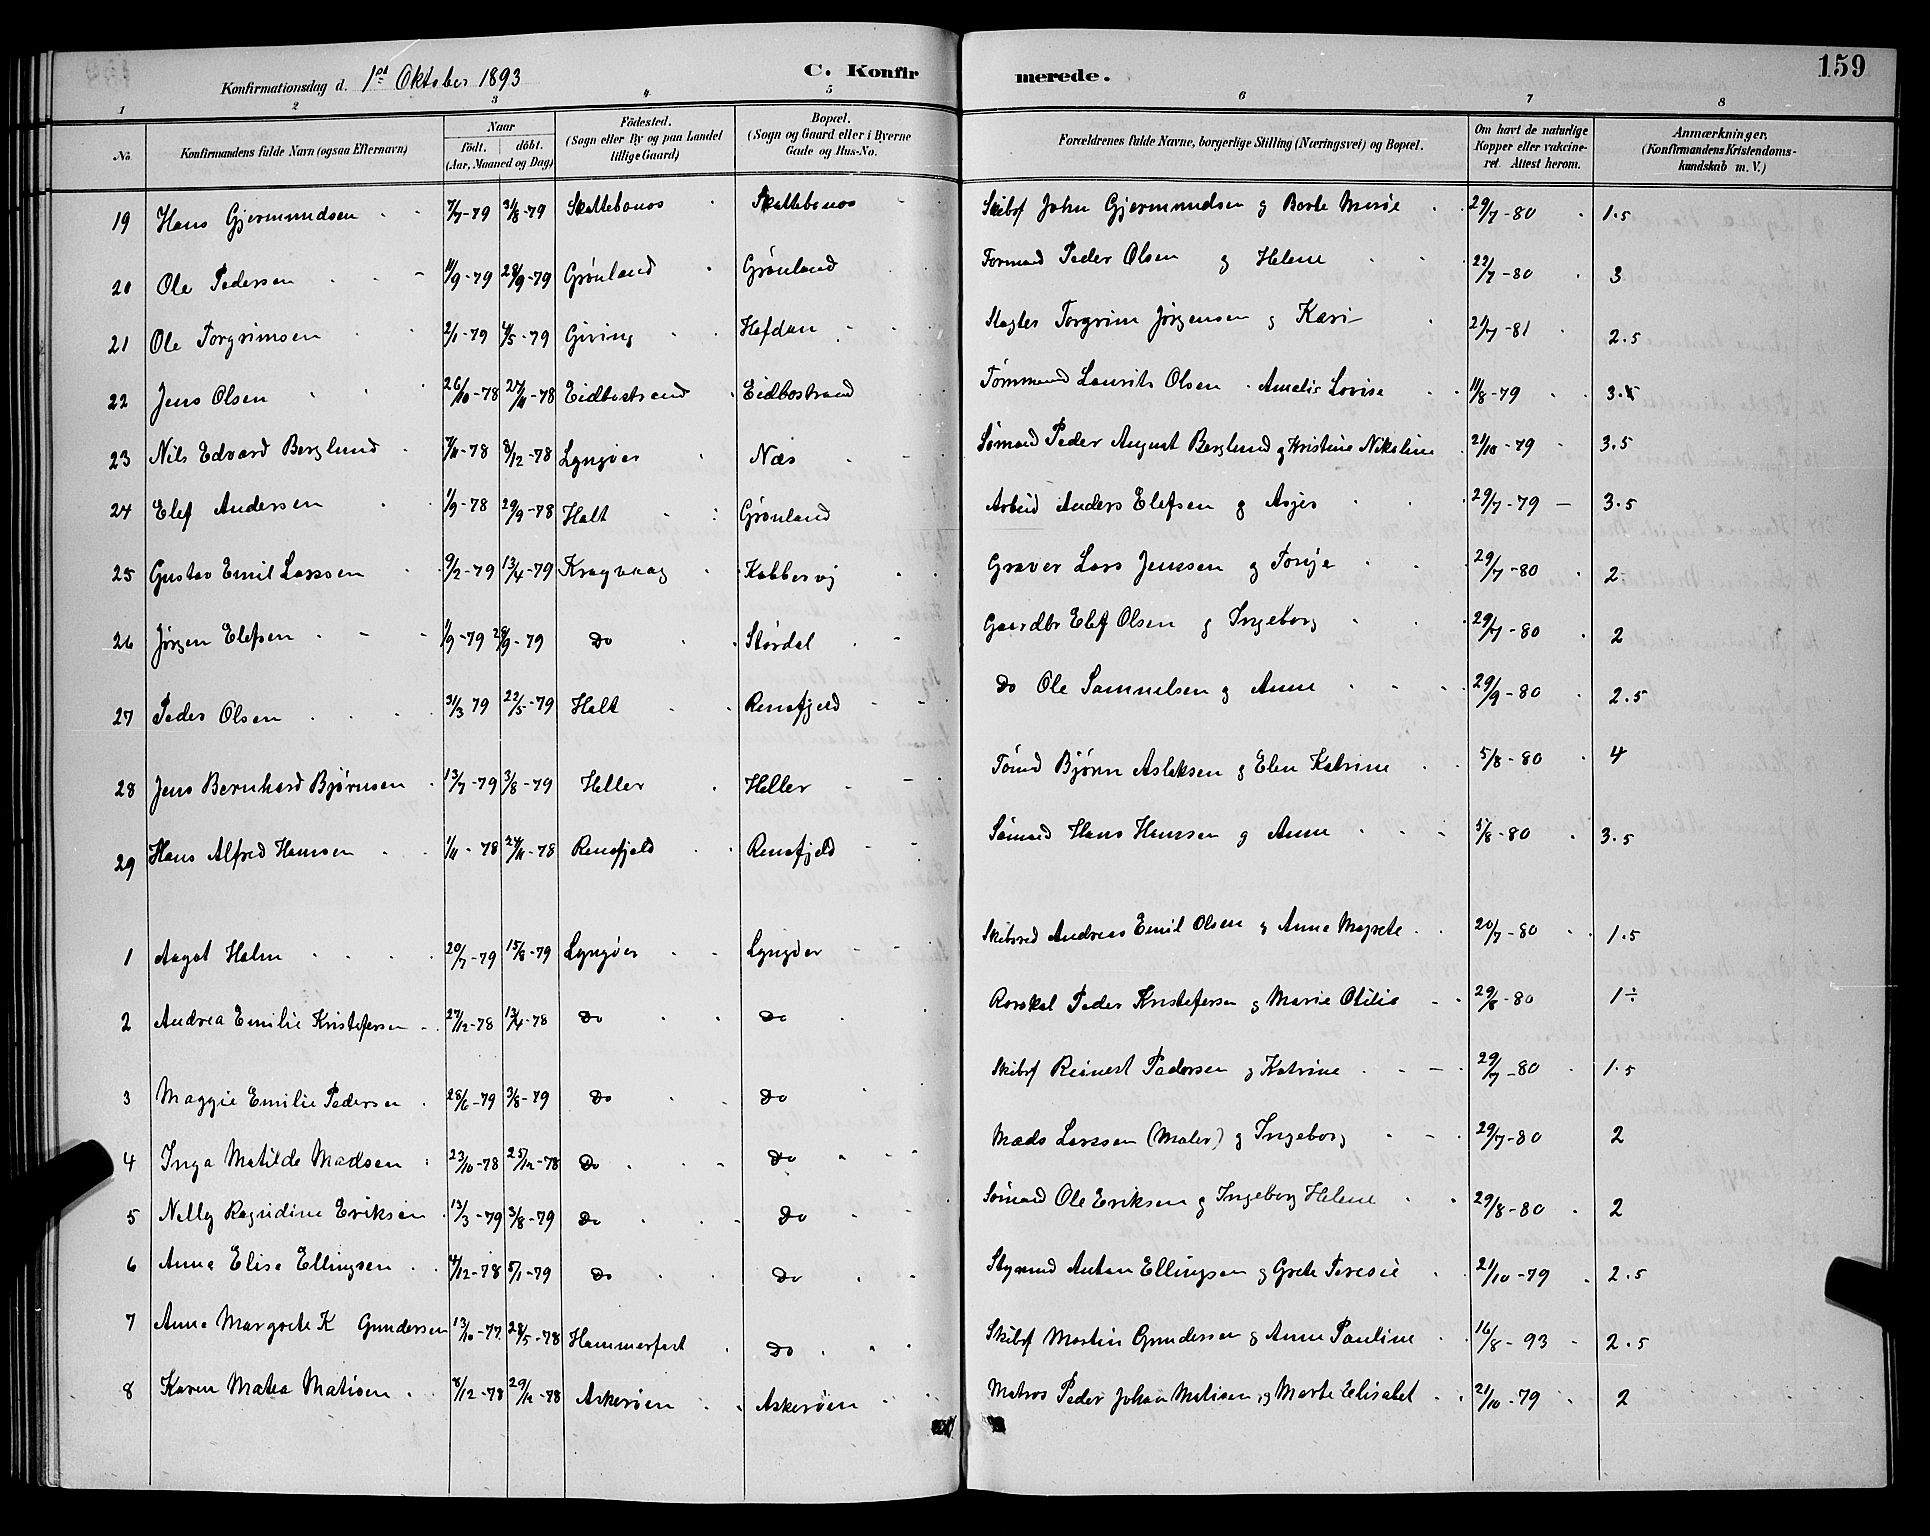 Konfirmationsdag d. 1ste Oktober 1893 C. Konfirmerede. 159
1 2 3 4 5 6 7 8
No Konfirmandens fulde Navn (ogsaa Efternavn) Naar født. døbt. (Aar, Maaned og Dag) Födested. (Sogn eller By og paa Landet tillige Gaard) Bopæl. (Sogn og Gaard eller i Byerne Gade og Hus-No. Forældrenes fulde Navne, borgerlige Stilling (Næringsvei) og Bopæl. Om havt de naturlige Kopper eller vakcineret. Attest herom. Anmærkninger. (Konfirmandens Kristendomskundskab m. V.)
19 Hans Gjermundsen 7/7-79 31/8-79 Skattebonos Skattebonos Skibsf John Gjermundsen & Berte Marie 29/7-80 1.5
20 Ole Pedersen 11/9-79 28/9-79 Grönland Grönland Formand Peder Olsen & Helene 22/7-80 3
21 Ole Torgrimsen 2/1-79 4/5-79 Giving Hafdan Slagter Torgrim Jörgensen & Kari 21/7-81 2.5
22 Jens Olsen 26/10-78 27/11-78 Eidbostrand Eidbostrand Tømmand Laurits Olsen Amalie Lovise 11/8-79 3.5
23 Nils Edvard Berglund 7/11-78 8/12-78 Lyngöer Næs Sømand Peder August Berglund & Kristine Nikoline 21/10-79 3.5
24 Elef Andersen 1/9-78 29/9-78 Holt Grönland Arbeid Anders Elefsen & Asjer 29/7-79 3.5
25 Gustav Emil Larssen 9/2-79 13/4-79 Kragvaag Kobbervig Graver Lars Jenssen & Tonje 29/7-80 2
26 Jörgen Elefsen 1/9-79 28/9-79 Do Stördal Gaardbr Elef Olsen & Ingeborg 29/7-80 2
27 Peder Olsen 31/3 79 22/5-79 Holt Rensfjeld Do Ole Samuelsen & Anne 29/9-80 2.5
28 Jens Bernhard Björnsen 13/7-79 3/8-79 Heller Heller Tömd Björn Aslaksen & Elen Katrine 5/8-80 4
29 Hans Alfred Hanssen 1/11-78 24/11-78 Rensfjeld Rensfjeld Sömand Hans Hanssen & Anne 5/8-80 3.5
1 Aagot Holm 20/7-79 15/8-79 Lyngöer Lyngöer Skibsred Andreas Emil Olsen & Anne Magrete 20/7-80 1.5
2 Andrea Emilie Kristofersen 27/12-78 13/4-78 Do Do Peder Kristofersen & Marie Otilie 29/8-80 1÷
3 Maggie Emilie Pedersen 28/6-79 3/8-79 Do Do Skibsf Reinert Pedersen & Katrine 29/7-80 1.5
4 Inga Matilde Madsen 23/10-78 25/12-78 Do Do Mads Larssen (Maler) & Ingeborg 29/7-80 2
5 Nelly Ragndine Eriksen 13/3-79 3/8-79 Do Do Sömand Ole Eriksen & Ingeborg Helene 29/8-80 2
6 Anna Elise Ellingsen 4/12-78 5/1-79 Do Do Styrmd Anton Ellingsen & Grete Teresie 21/10-79 2.5
7 Anne Margrete K Gundersen 13/10-77 28/5-78 Hammerfest Do Skibsf Martin Gundersen & Anne Pauline 16/8-93 2.5
8 Karen Matea Matisen 8/12-78 29/12-78 Askeröen Askeröen Matros Peder Johan Matisen & Marte Elisabet 21/10-79 2